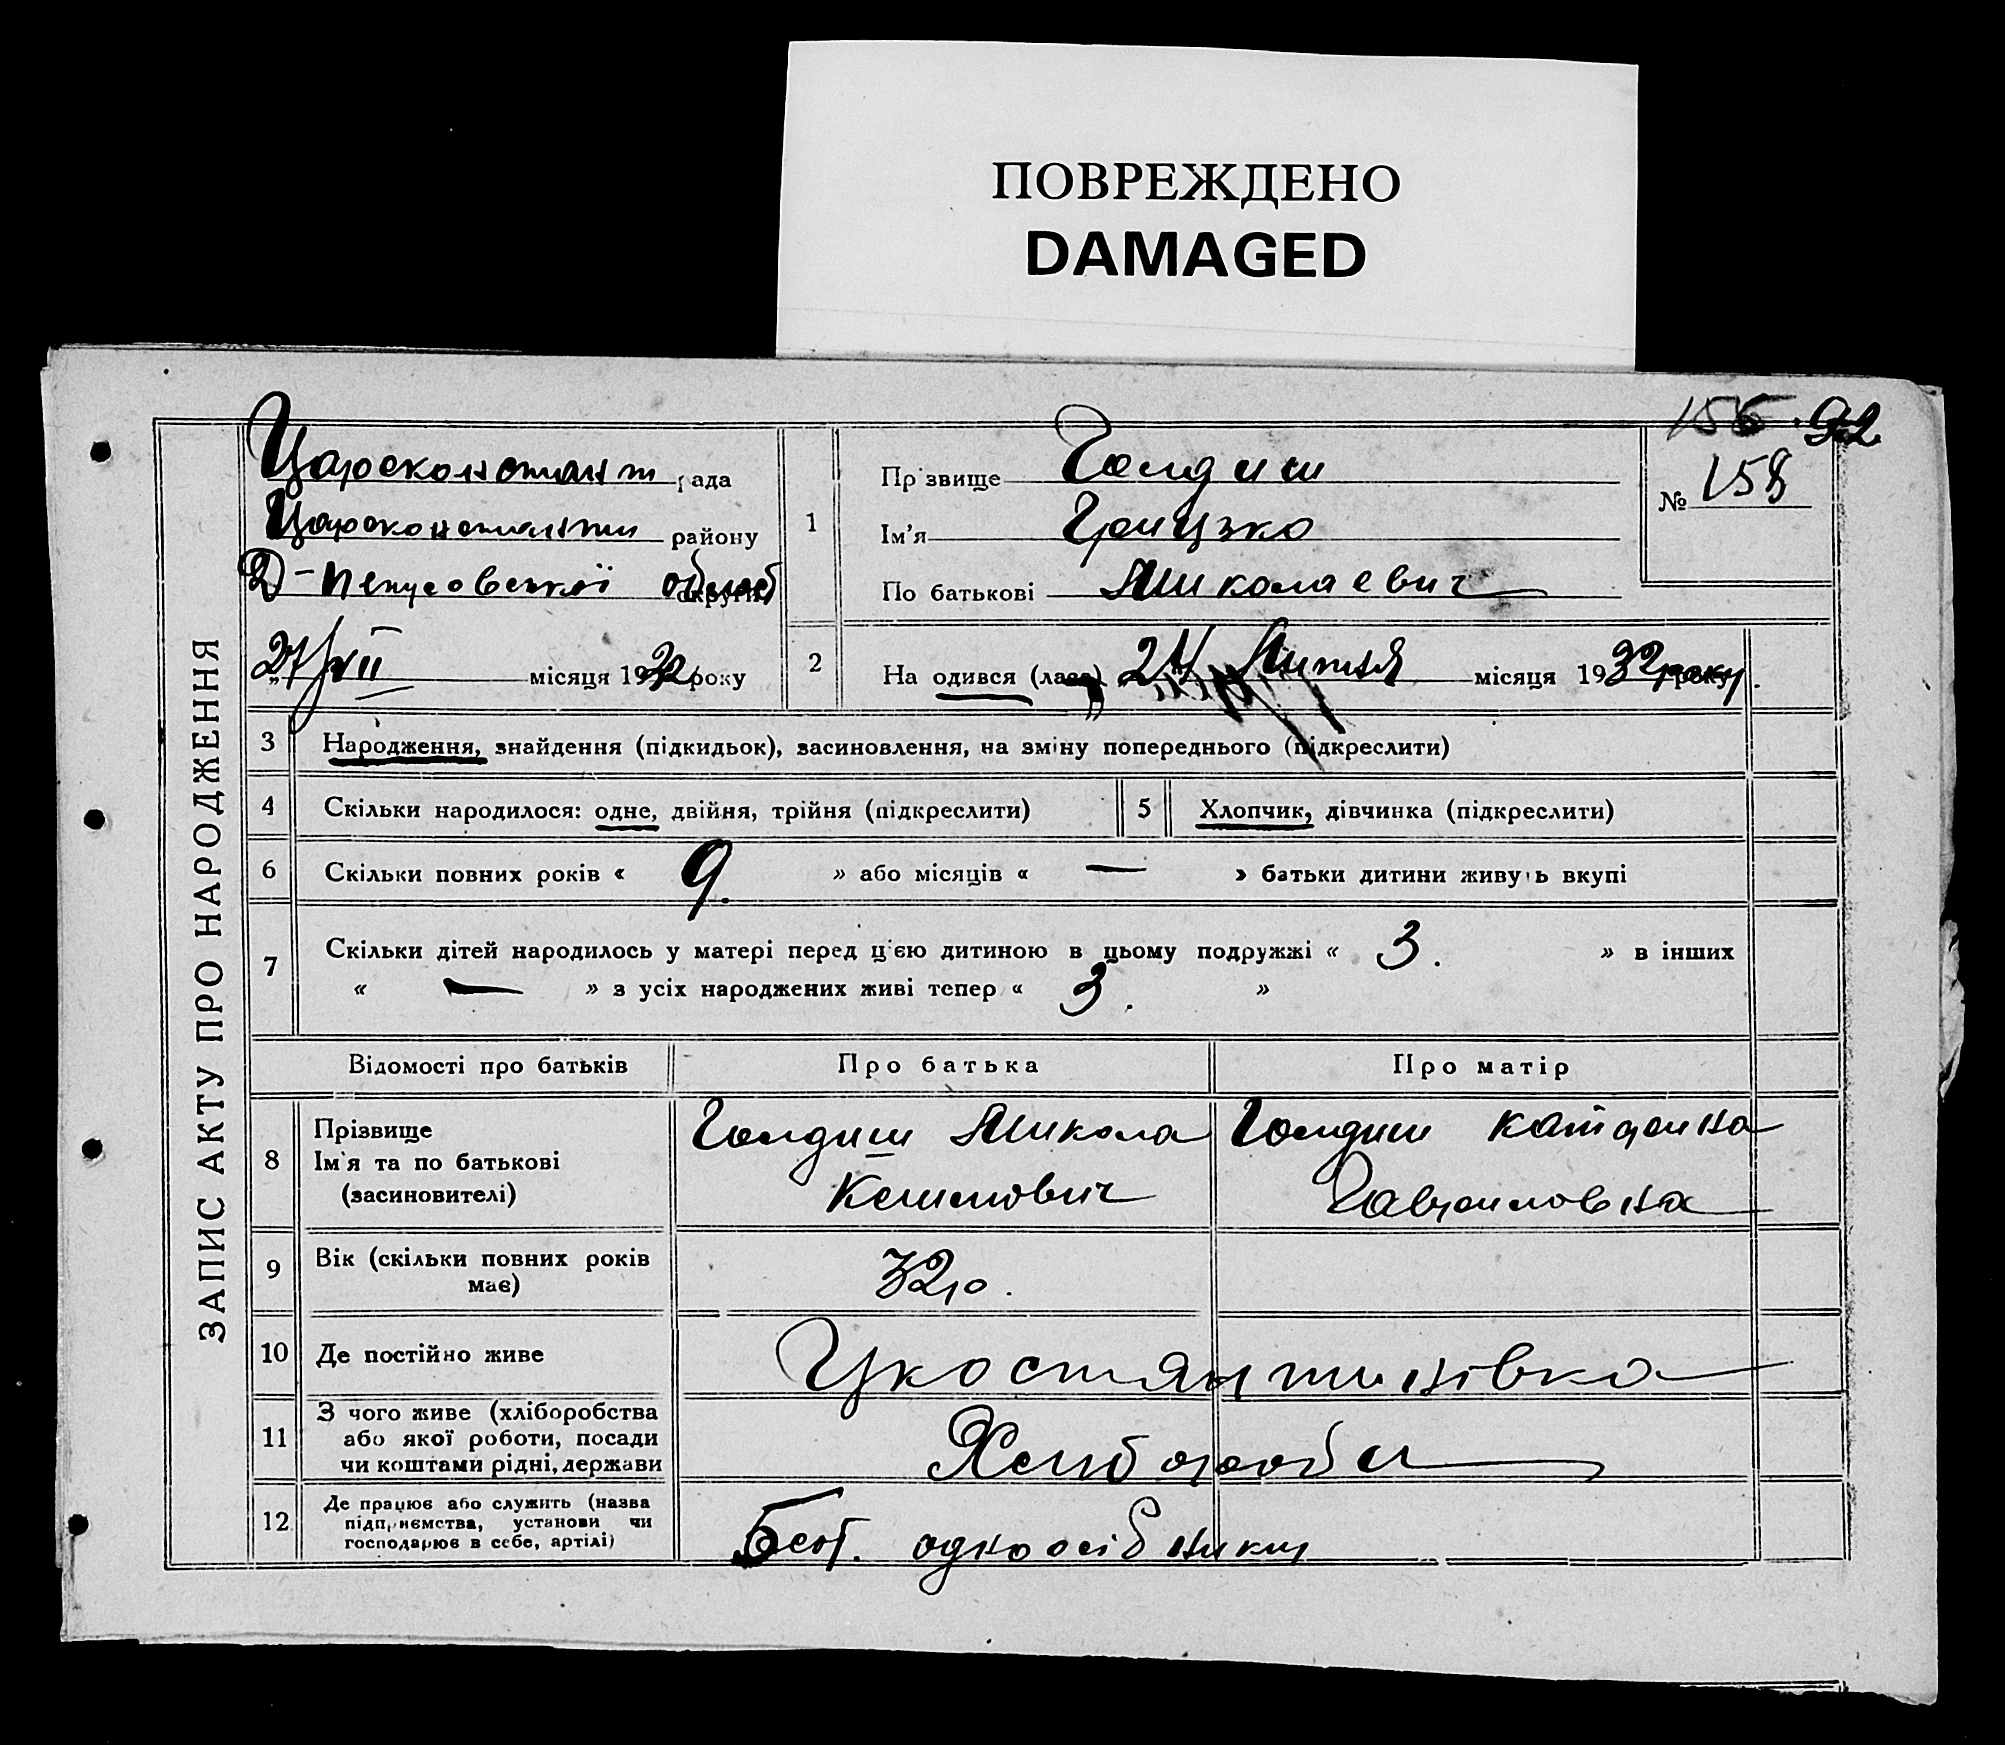 ПОВРЕЖДЕНО
DAMAGED
ЗАПИС АКТУ ПРО НАРОДЖЕННЯ
92
Царсконстант рада
Царсконстант району
округи
27/VII місяця 1932 року
1
Прізвище Голдиш
Ім'я Грицько
По батькові Миколаевич
№ 158
2
Народився (лася) 24 Липня місяця 1932 року
3 Народження, знайдення (підкидьок), засиновлення, на зміну попереднього (підкреслити)
4 Скільки народилося: одне, двійня, трійня (підкреслити)
5 Хлопчик, дівчинка (підкреслити)
6 Скільки повних років « 9. » або місяців « — » батьки дитини живуть вкупі
7 Скільки дітей народилось у матері перед цією дитиною в цьому подружжі « 3. » в інших
« — » з усіх народжених живі тепер « 3. »
Відомості про батьків Про батька Про матір
8 Прізвище
Ім'я та по батькові
(засиновителі)
Голдиш Микола
Климович
Голдиш Катерина
Гавриловна
9 Вік (скільки повних років
має)
32 р.
10 Де постійно живе Цкостянтинівка
11 З чого живе (хліборобства
або якої роботи, посади
чи коштами рідні, держави
Хлибороби
12 Де працює або служить (назва
підприємства, установи чи
господарює в себе, артілі)
одноосібники